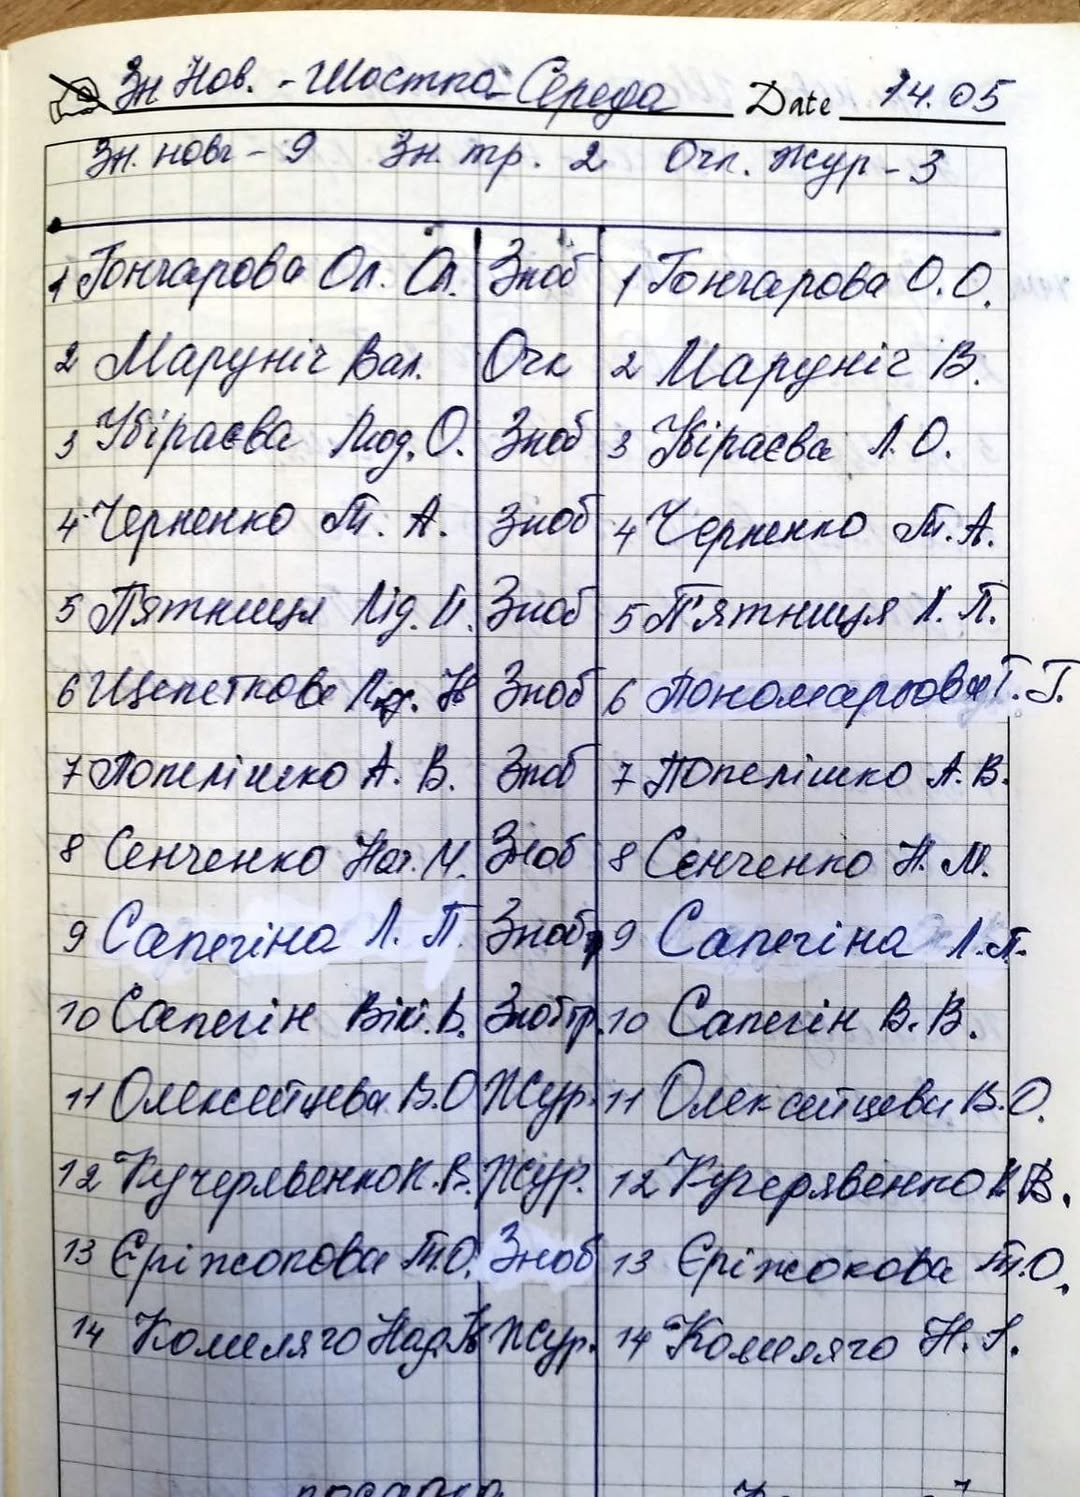 Зн Нов. - Шостка - Середа Date 14.05
Зн. новг - 9 Зн. тр. 2 Очк. Жур - 3
1 Гончарова Ол. Ол. Зноб 1 Гончарова О.О.
2 Маруніч Вал. Очк 2 Маруніч В.
3 Убіраєва Люд. О. Зноб 3 Убіраєва Л.О.
4 Черненко Т. А. Зноб 4 Черненко Т.А.
5 П'ятниця Лід. П. Зноб 5 П'ятниця Л. П.
6 Щепеткова Зноб 6 Пономарьова Г. Г.
7 Попелішко А. В. Зноб 7 Попелішко А.В.
8 Сенченко Нат. М. Зноб 8 Сенченко Н. М.
9 Сапегіна Л. П. Знобтр 9 Сапегіна Л.П.
10 Сапегін Вікт. В. Знобтр. 10 Сапегін В.В.
11 Олексейцева В.О Жур. 11 Олексейцева В.О.
12 Кучерявенко Н.В. Жур. 12 Кучерявенко Н В.
13 Єріжокова Т.О. Зноб 13 Єріжокова Т.О.
14 Комеляго Над. Жур. 14 Комеляго Н.
посадка